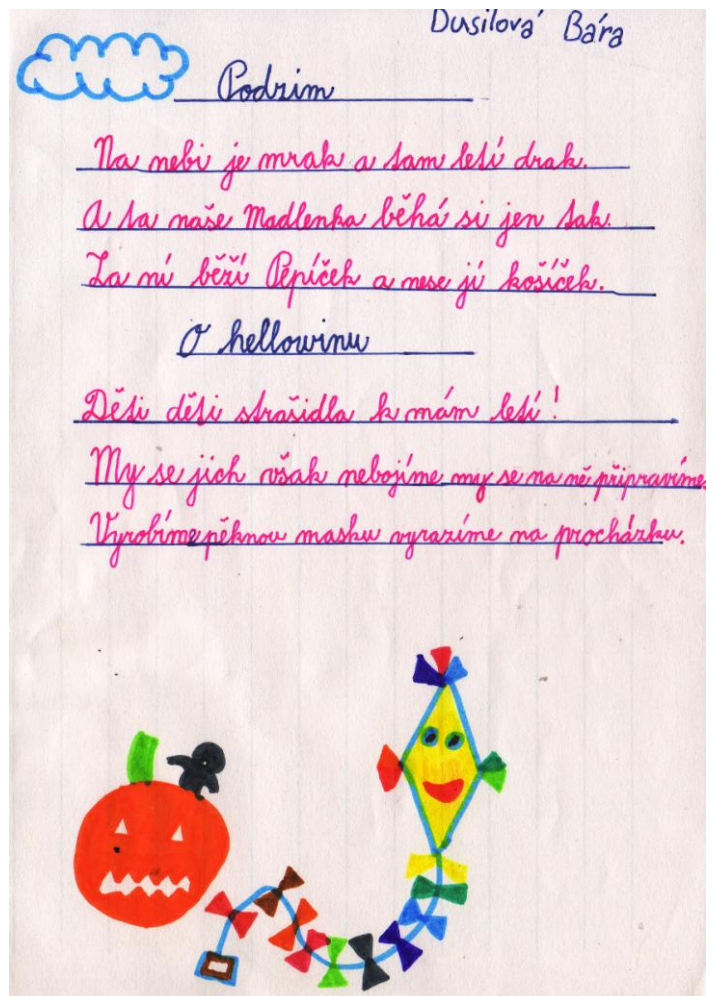 Dusilová Bára
Podzim
Na nebi je mrak a tam letí drak.
A ta naše Madlenka běhá si jen tak.
Za ní běží Pepíček a nese jí košíček.
O hellowinu
Děti děti strašidla k mám letí!
My se jich však nebojíme my se na ně připravíme.
Vyrobíme pěknou masku vyrazíme na procházku.